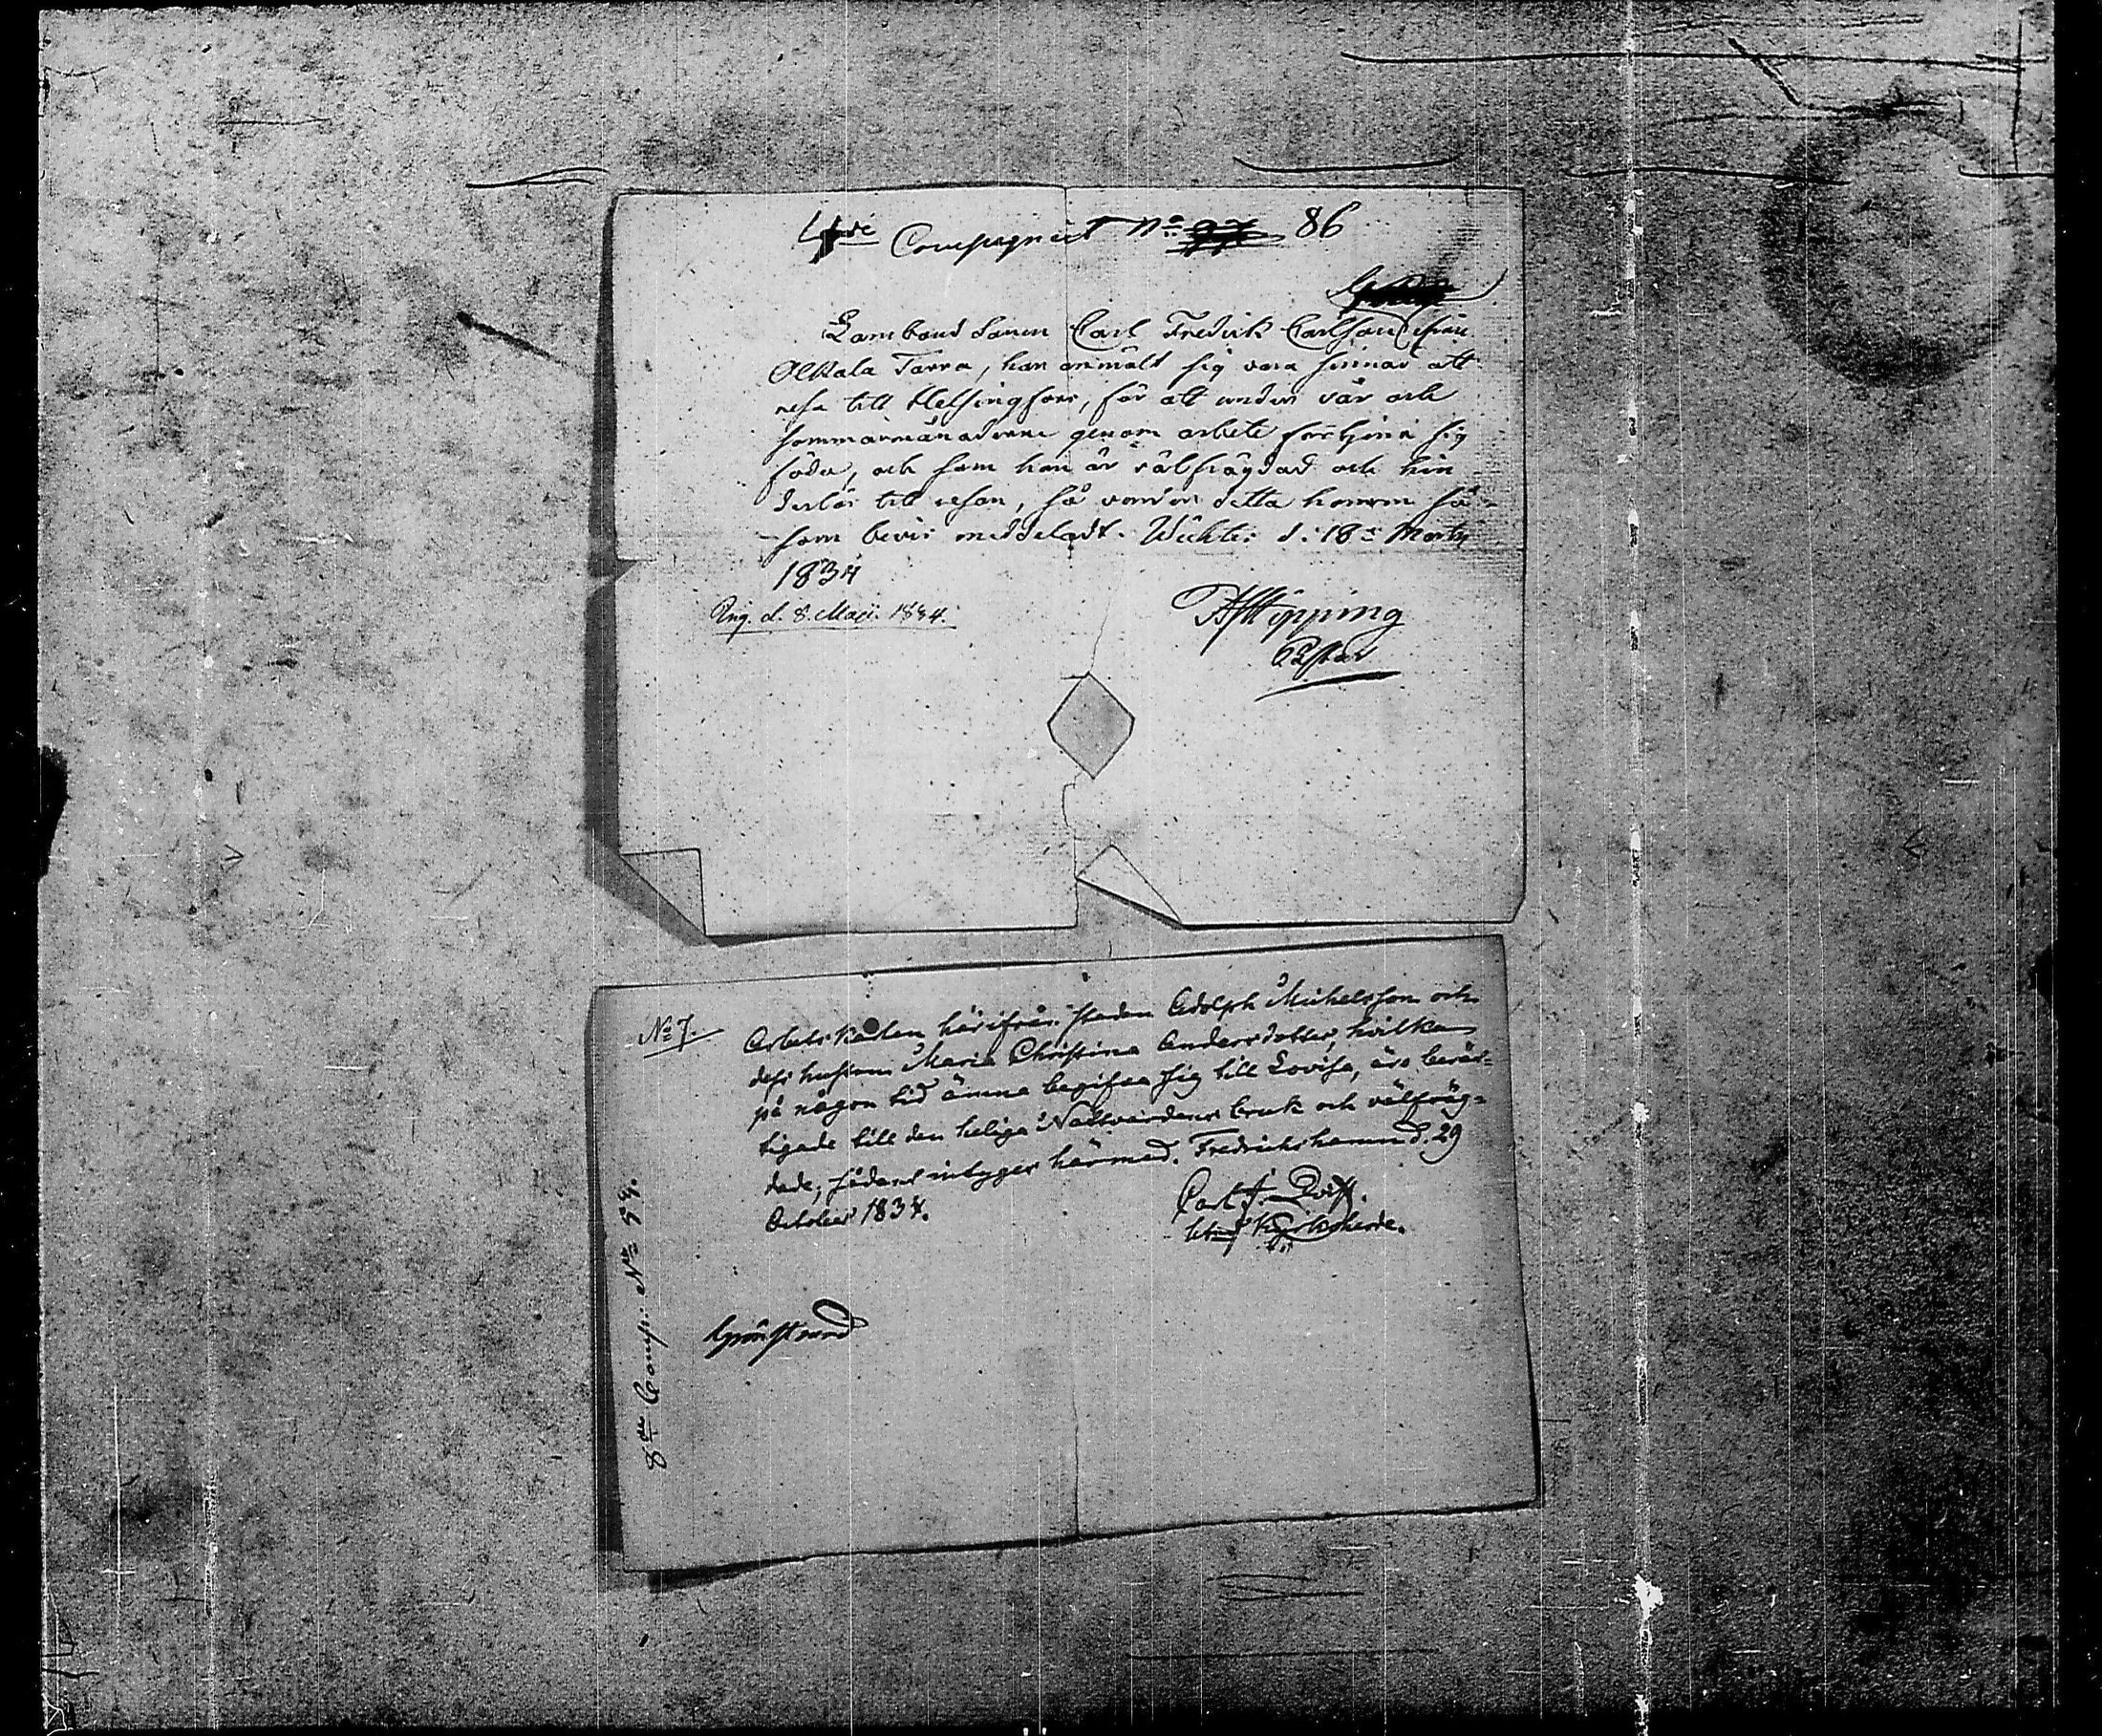 4de Compagniet No 86
Landbond Sonen Carl Fredrik Carlsson ifrån
Olkala Tarra, har anmält sig vara sinnad att
resa till Helsingfors, för att under vår och
sommarmånaderne genom arbete förtjena sig
föda, och som han är välfrägdad och hin
derlös till resan, så varder detta honom så-
som bevis meddeladt. Wichtis d. 18de Martii
1834
Ing. d. 8. Maji. 1834.
No 7. Arbets Karlen härifrån staden Adolph Michelsson och
dess hustru Maria Christina Andersdotter, hvilka
på någon tid ämna begifva sig till Lovisa, äro berät-
tigade till den heliga Nattvardens bruk och välfräg-
dade; sådant intygar härmed. Fredrichshamn d. 29
October 1834.
Carl J.
Kyrkoherde.
Grönstrand
8de Comp: No 54.